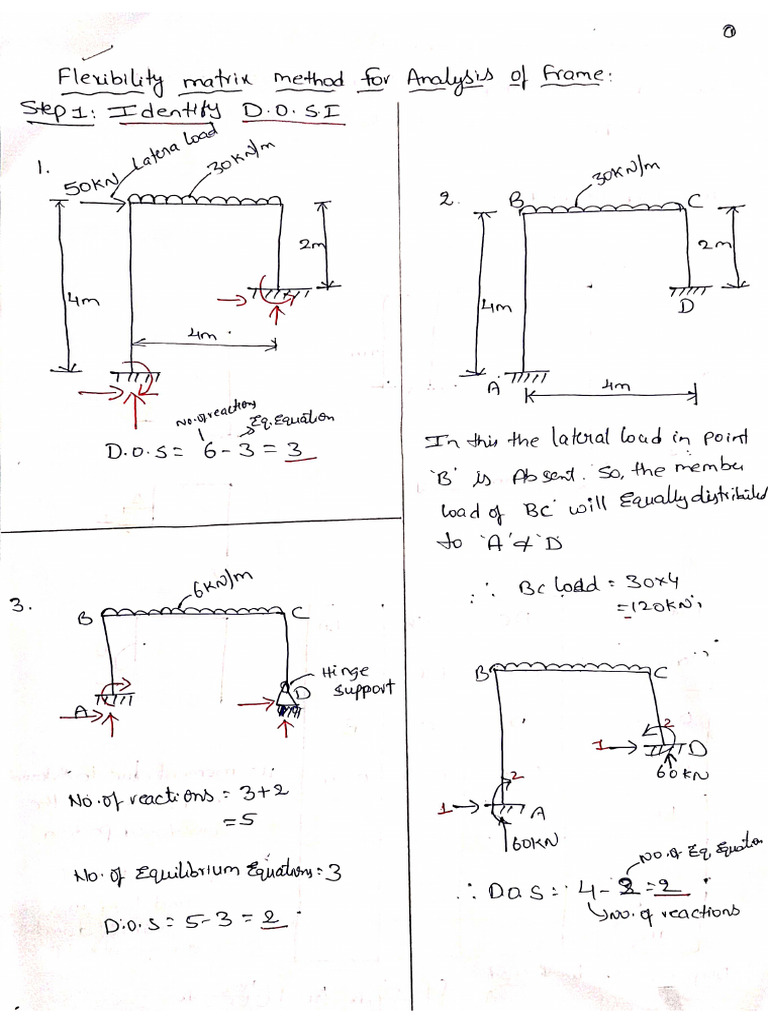 Flexibility matrix method for Analysis of Frame:
Step 1: Identify D.O.S.I
1.
50KN
Latera load
30KN/m
2m
4m
4m
No. of reactions
Eq. Equation
D.O.S = 6 - 3 = 3
2.
30KN/m
B
C
2m
4m
D
A
4m
In this the lateral load in point
'B' is Absent. So, the member
load of 'BC' will Equally distributed
to 'A' & 'D
∴ BC load = 30x4
= 120KN;
B
C
1
2
D
60KN
2
1
A
60KN
No. of Eq. Equation
∴ D O S = 4 - 2 = 2
No. of reactions
3.
6KN/m
B
C
Hinge
support
D
A
No. of reactions = 3+2
= 5
No. of Equilibrium Equations = 3
D.O.S = 5-3 = 2